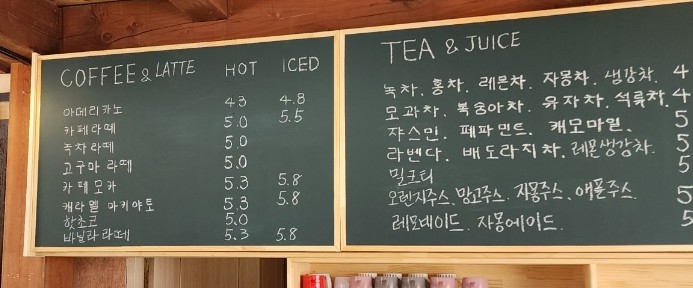 COFFEE & LATTE HOT ICED
아메리카노 4.3 4.8
카페라떼 5.0 5.5
녹차라떼 5.0
고구마 라떼 5.0
카페모카 5.3 5.8
캐라멜 마키야토 5.3 5.8
핫초코 5.0
바닐라라떼 5.3 5.8
TEA & JUICE
녹차. 홍차. 레몬차. 자몽차. 생강차. 4
모과차. 복숭아차. 유자차. 석류차. 4
쟈스민. 페파민트. 캐모마일. 5
라벤다. 배도라지차. 레몬생강차. 5
밀크티 5
오렌지주스. 망고주스. 자몽주스. 애플주스. 5
레모네이드. 자몽에이드. 5